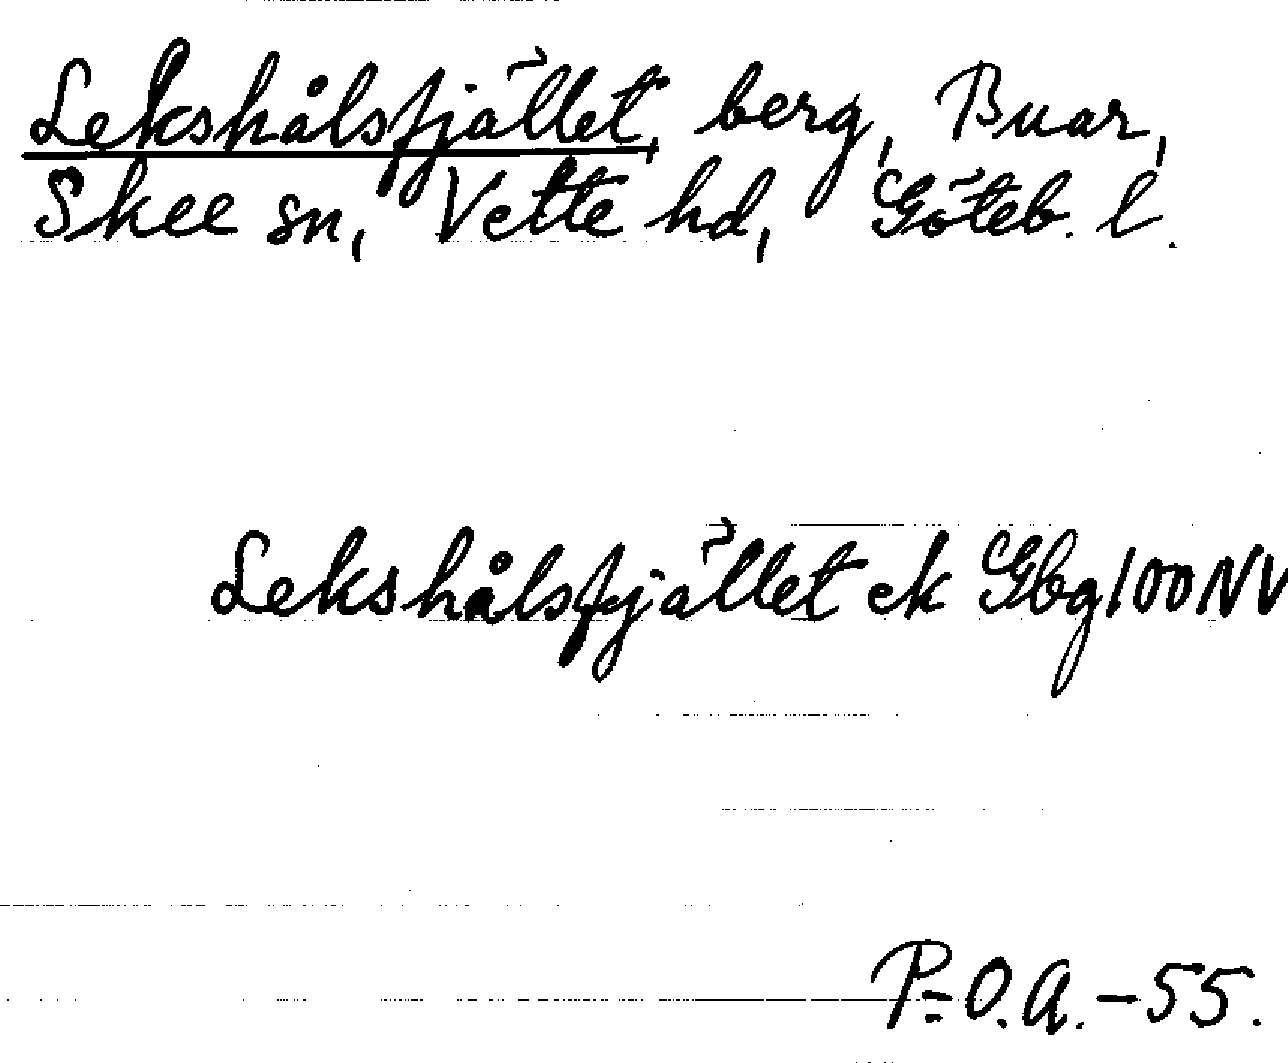 Lekshålsfjället, berg, Buar,
Skee sn, Vette hd, Göteb. l.
Lekshålsfjället ek Gbg 100 NV
P=O.A.-55.